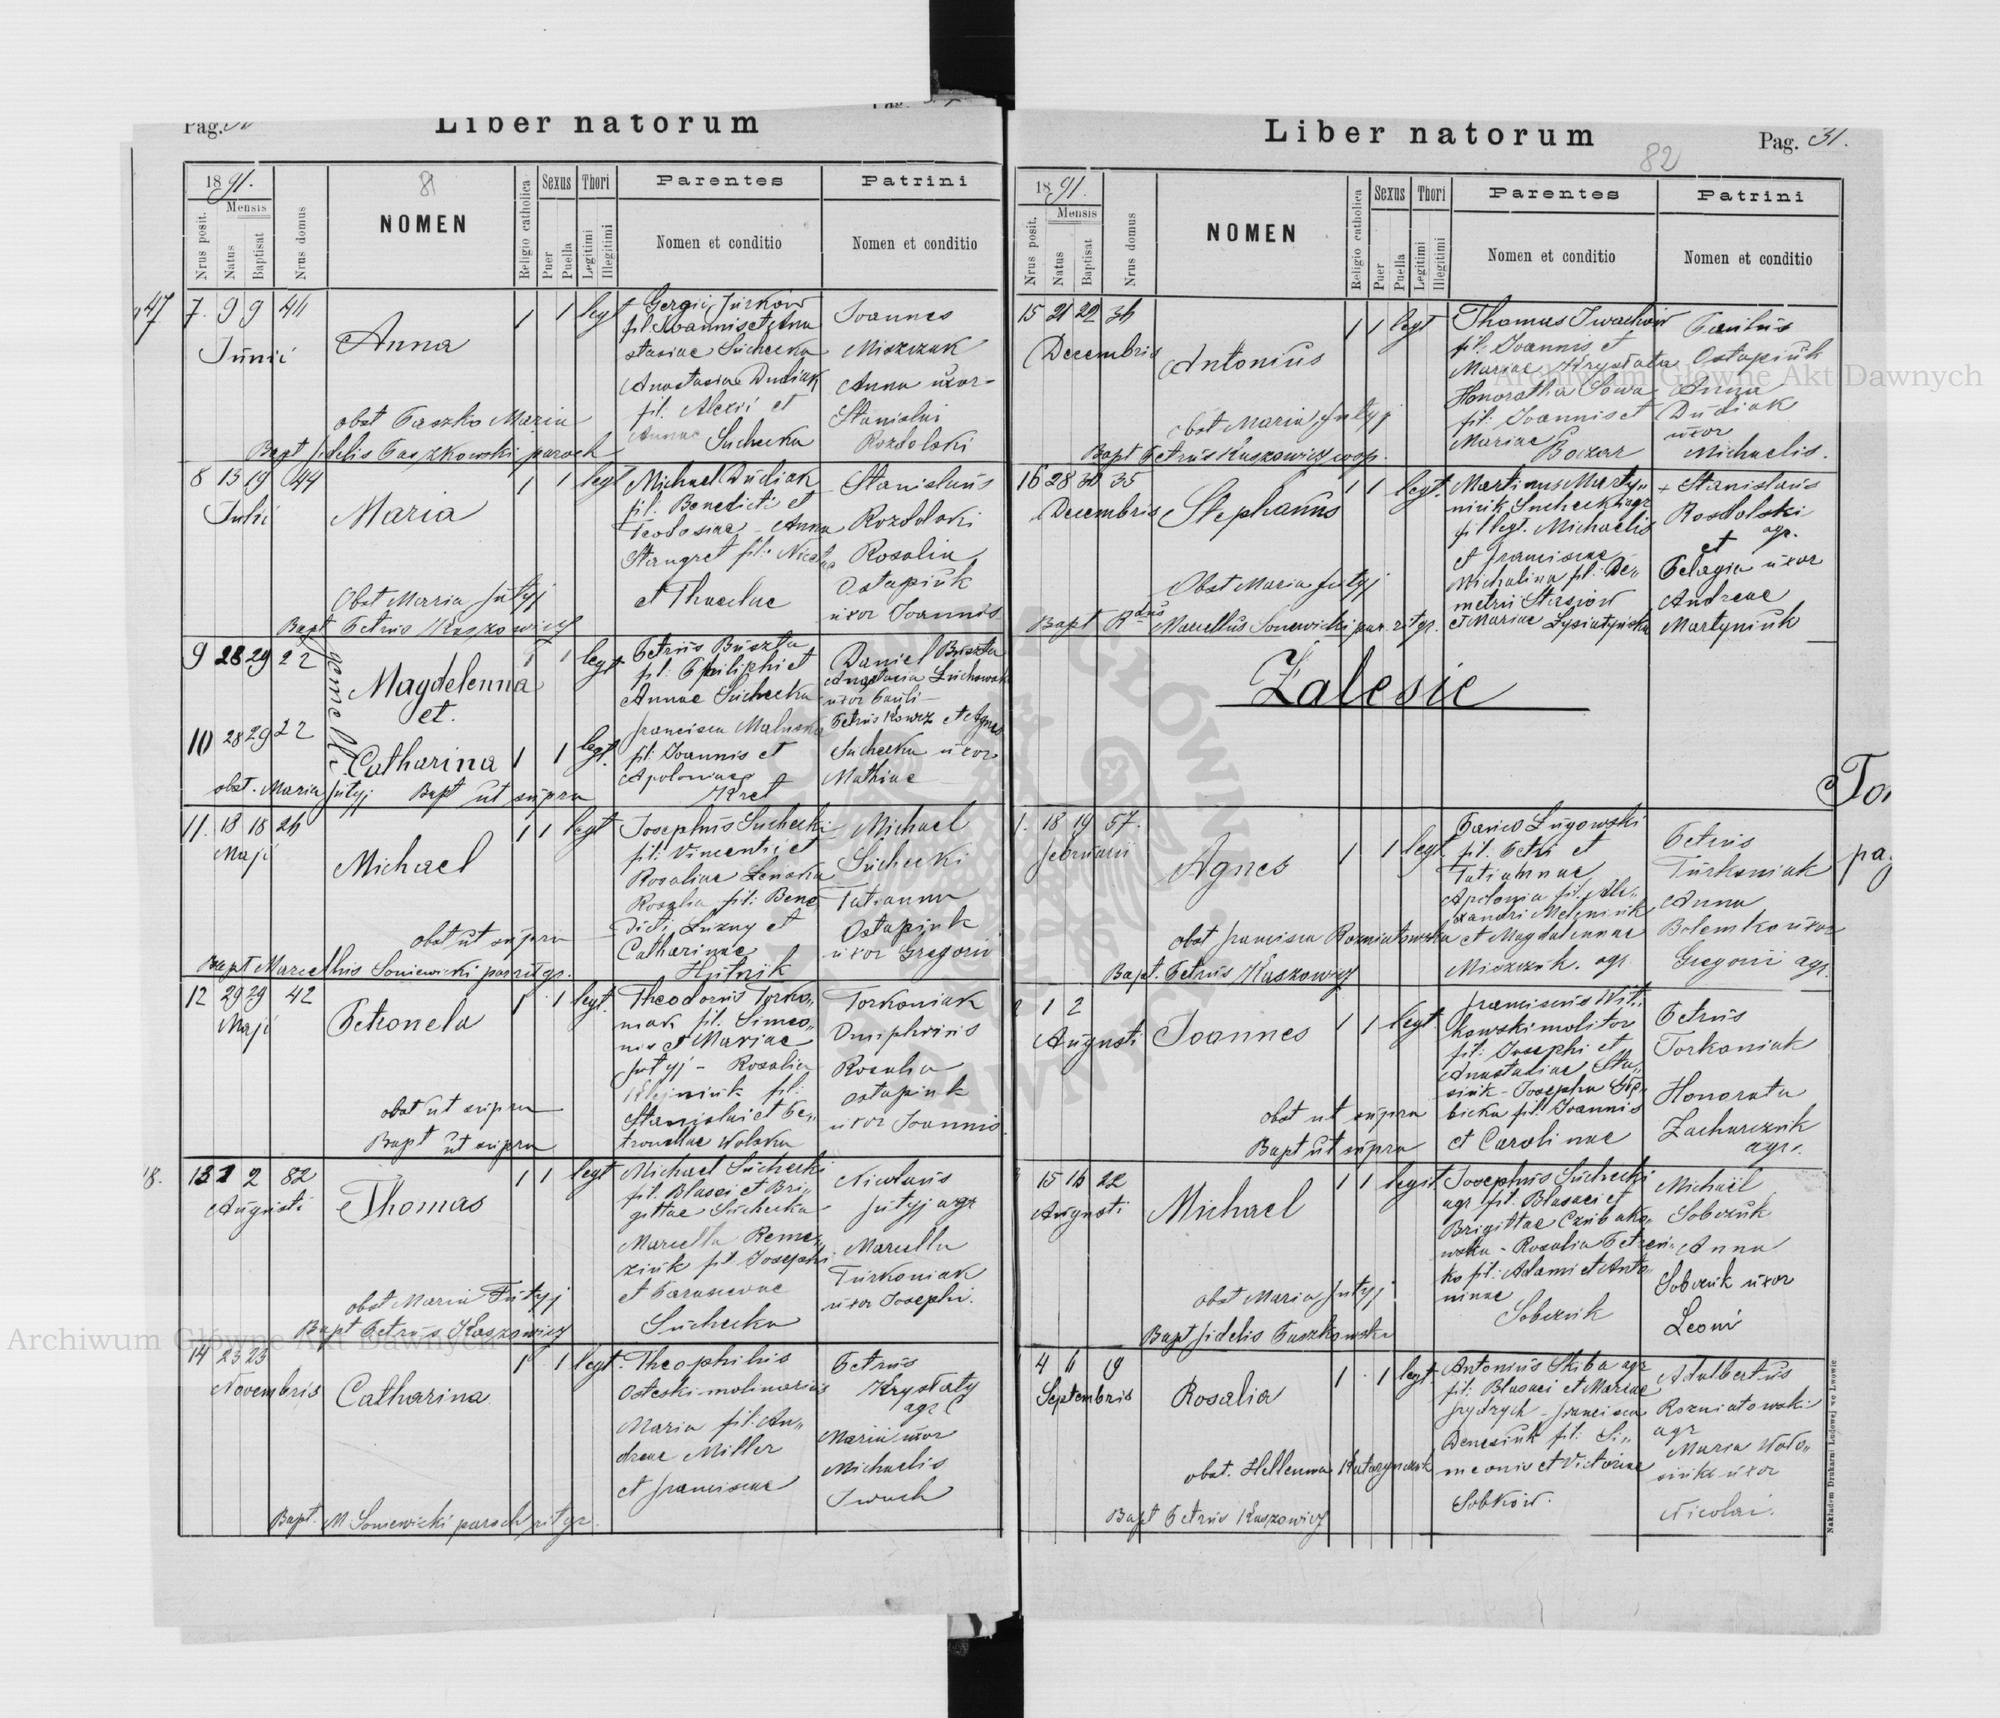 Pag.
Liber natorum
1891.
81
Nrus posit.
Mensis
Natus
Baptisat
Nrus domus
NOMEN
Religio catholica
Sexus
Puer
Puella
Thori
Legitimi
Illegitimi
Parentes
Nomen et conditio
Patrini
Nomen et conditio
7. 9 9
Junii
Anna
1 1 legt
obst Paszko Maria
Bapt fidelis Paszkowski paroch
Georgii Jurków
fil Joannis et Ana
stasiae Suchecka
Anastasia Dudiak
fil. Alexii et
Annae Suchecka
Joannes
Miszczuk
Anna uxor
Stanislai
Rozdolski
8 13 19 44
Julii
Maria
1 1 legt
Obst Maria Jutyj
Bapt Petrus Kaszowicz
Michael Dudiak
fil. Benedicti et
Teodosiae - Anna
Stangret fil: Nicolai
et Theclae
Stanislaus
Rozdolski
Rosalia
Ostapiuk
uxor Joannis
9 28 29 22
gemelli
Magdelenna
et.
1 1 legt
10 28 29 22
Catharina 1 1 legt.
obst. Maria Jutyj Bapt ut supra
Petrus Buszta
fil: Philiphi et
Annae Suchecka
Francisca
fil: Joannis et
Apoloniae
Kret
Daniel Buszta
Anastasia
uxor Pauli
Petrus et Agnes
Suchecka uxor
Mathiae
11. 18 18 26
Maji
Michael
1 1 legt
obst ut supra
Bapt Marcellus Soniewicki par rit gr.
Josephus Suchecki
fil: Vincentii et
Rosaliae
Rosalia fil: Bene
dicti Luzny et
Catharinae
Hutnik
Michael
Suchecki
Tatianna
Ostapiuk
uxor Gregorii
12 29 29 42
Maji
Petronela
1 1 legt.
obst ut supra
Bapt ut supra
Theodorus Torko„
niak fil. Simeo„
nis et Mariae
Jutyj - Rosalia
Olejniuk fil:
Stanislai et Pe„
tronellae Wolska
Torkoniak
Onuphrius
Rosalia
Ostapiuk
uxor Joannis
13 2 2 82
Augusti
Thomas
1 1 legt
obst Maria Jutyj
Bapt Petrus Kaszowicz
Michael Suchecki
fil. Blasei et Bri„
gittae Suchecka
Marcella Reme„
ziuk fil Josephi
et Parasevae
Suchecka
Nicolaus
Jutyj agr
Marcella
Turkoniak
uxor Josephi.
14 23 23
Novembris
Catharina
1 1 legt.
Bapt. M. Soniewicki paroch rit gr.
Theophilus
Osteski molinarius
Maria fil. An„
dreae Miller
et Franciscae
Petrus
Krysťaty
agr
Maria uxor
Michaelis
Iwach
Liber natorum
Pag. 31.
82
1891.
Nrus posit.
Mensis
Natus
Baptisat
Nrus domus
NOMEN
Religio catholica
Sexus
Puer
Puella
Thori
Legitimi
Illegitimi
Parentes
Nomen et conditio
Patrini
Nomen et conditio
15 21 22 36
Decembris
Antonius
1 1 legt
obst Maria Jutyj
Bapt Petrus Kaszowicz coop.
Thomas Iwachów
fil: Joannis et
Mariae Krystata
Honoratha Sowa
fil: Joannis et
Mariae
Boczar
Paulus
Ostapiuk
Anna
Dudiak
uxor
Michaelis.
16 28 30 35
Decembris
Stephanus
1 1 legt.
Obst Maria Jutyj
Bapt Rdus Marcellus Soniewicki par. rit gr.
Martinus Marty„
niuk Suchecki agr
fil legt. Michaelis
et Franciscae
Michalina fil: De„
metrii Stasiów
et Mariae Lysiatynska
+ Stanislaus
Rosdolski
agr.
et
Pelagia uxor
Andreae
Martyniuk
Zalesie
1. 18 19 57.
Februarii
Agnes
1 1 legt
obst Francisca Rozniatowska
Bapt. Petrus Kaszowicz
Panko Lugowski
fil. Petri et
Tatiannae
Apolonia fil. Ale„
xandri Melzniuk
et Magdalennae
Miszczuk. agr
Petrus
Turkoniak
Anna
uxor
Gregorii agr.
1 2
Augusti
Joannes
1 1 legt.
obst ut supra
Bapt ut supra
Franciscus Wit„
kowski molitor
fil: Josephi et
Anastasiae Sta„
siuk - Josepha
bicka fil. Joannis
et Carolinae
Petrus
Torkoniak
Honorata
Zacharczuk
agr.
15 16 22
Augusti
Michael
1 1 legit
obst Maria Jutyj
Bapt fidelis Paszkowski
Josephus Suchecki
agr fil. Blasaei et
Brigittae Czubako„
wska - Rosalia Petren„
ko fil: Adami et Anto„
ninae
Sobczuk
Michael
Sobczuk
Anna
Sobczuk uxor
Leoni
4 6 19
Septembris
Rosalia
1 1 legt.
obst. Hellenna Katarynczuk
Bapt Petrus Kaszowicz
Antonius Skiba agr
fil: Blasaei et Mariae
Frydrych - Francisca
Denesiuk fil: Si„
meonis et Victoriae
Sobków.
Adalbertus
Rozniatowski
agr
Maria Woło„
siuk uxor
Nicolai.
Nakładem Drukarni Ludowej we Lwowie
Archiwum Główne Akt Dawnych
Archiwum Główne Akt Dawnych